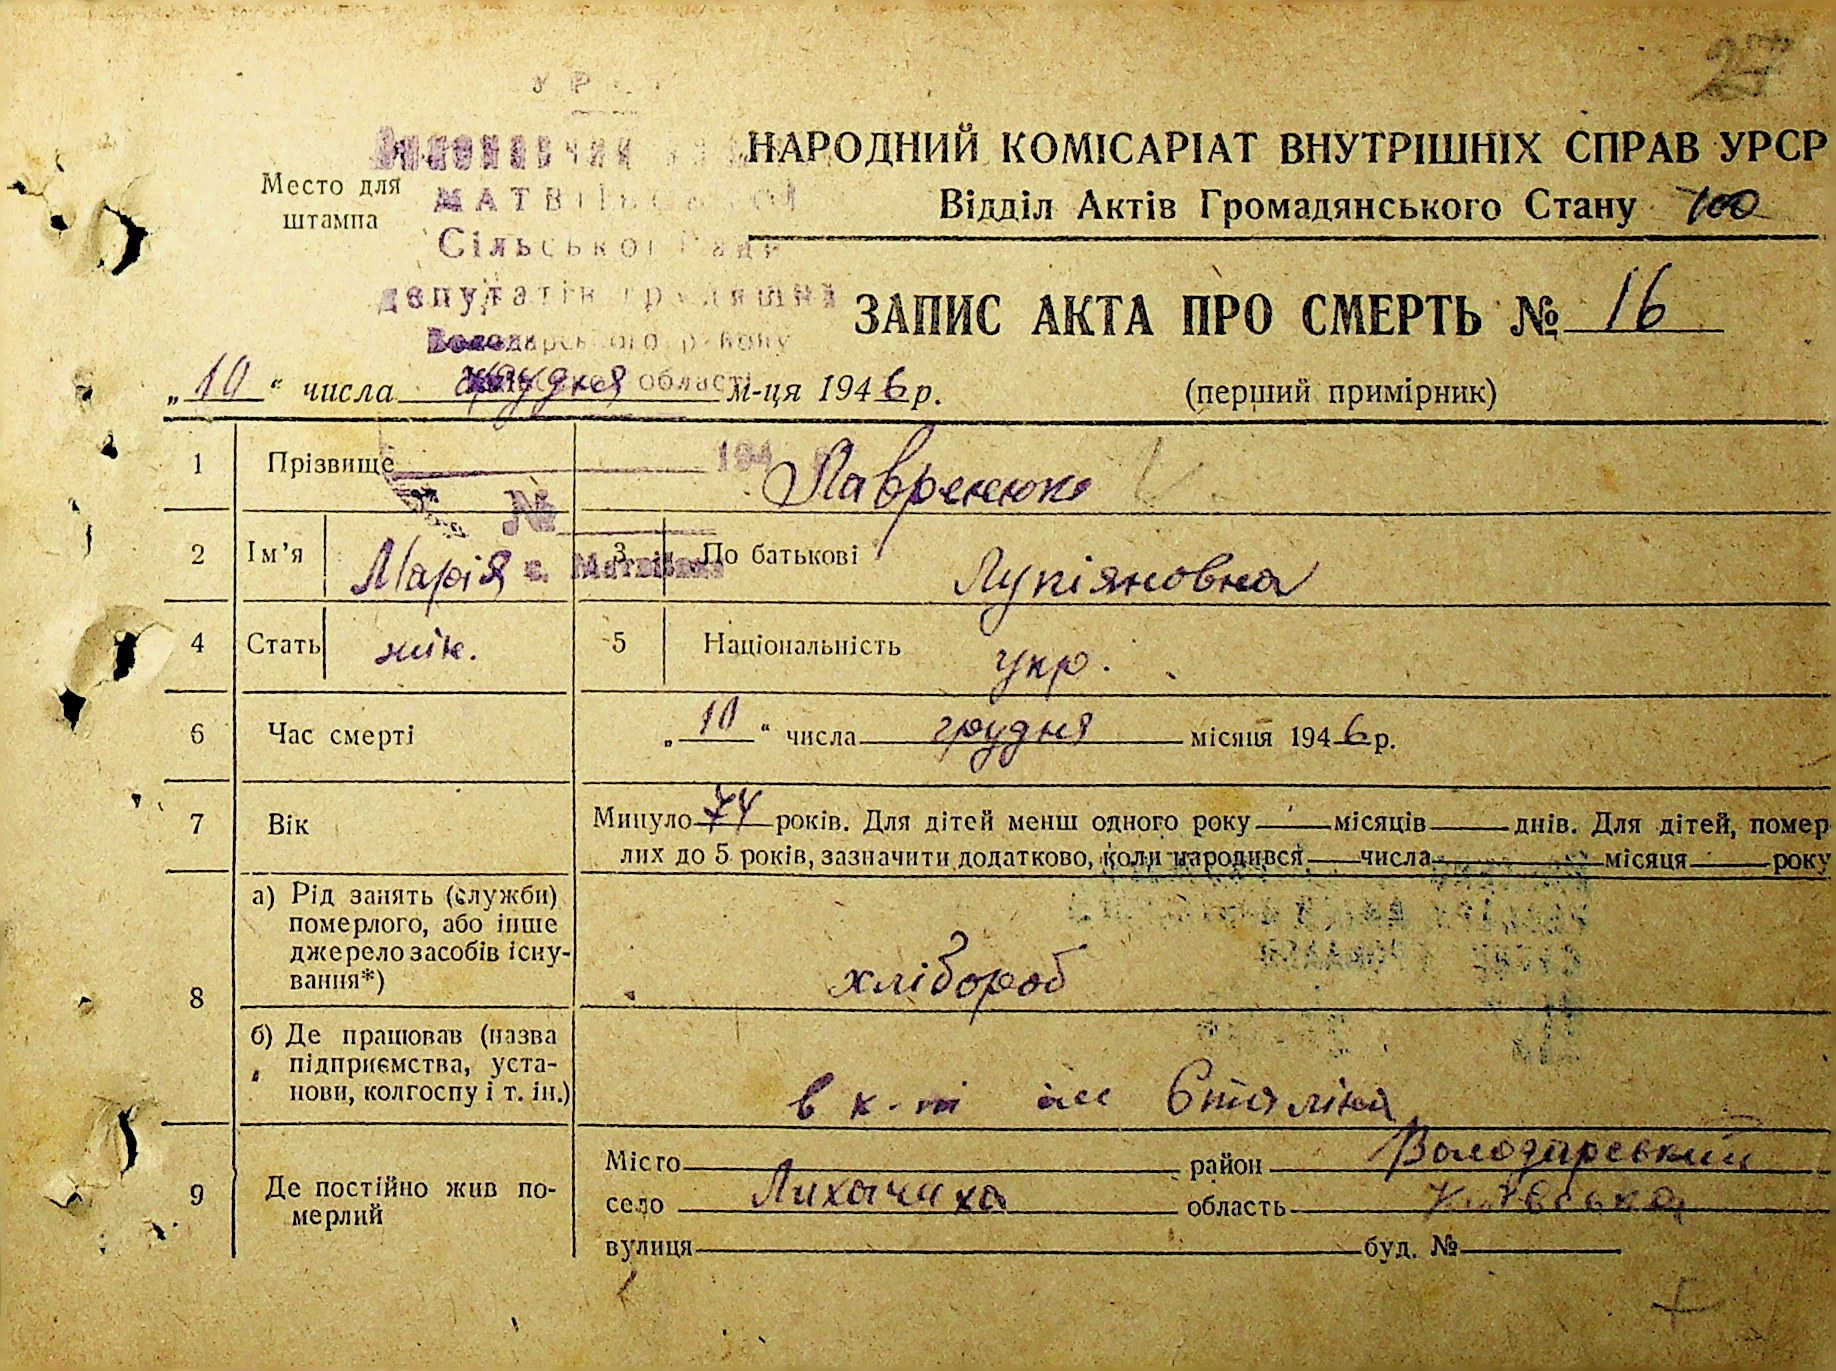 27
УРСР
Виконавчий
МАТВІЇВСЬКОЇ
Сільської Ради
депутатів трудящих
Володарського району
Київської області
194
№
с. Матвіївка
Место для
штампа
НАРОДНИЙ КОМІСАРІАТ ВНУТРІШНІХ СПРАВ УРСР
Відділ Актів Громадянського Стану 100
ЗАПИС АКТА ПРО СМЕРТЬ № 16
„10“ числа грудня м-ця 1946 р. (перший примірник)
1 Прізвище Лавренюк
2 Ім'я Марія 3 По батькові Лупіяновна
4 Стать жін. 5 Національність укр.
6 Час смерті „10“ числа грудня місяця 1946 р.
7 Вік Минуло 74 років. Для дітей менш одного року місяців днів. Для дітей, помер
лих до 5 років, зазначити додатково, коли народився числа місяця року
8 а) Рід занять (служби)
померлого, або інше
джерело засобів існу-
вання*)
хлібороб
б) Де працював (назва
підприємства, уста-
нови, колгоспу і т. ін.)
в к-ті ім Сталіна
9 Де постійно жив по-
мерлий
Місто район Володарський
село Лихачиха область Київська
вулиця буд. №